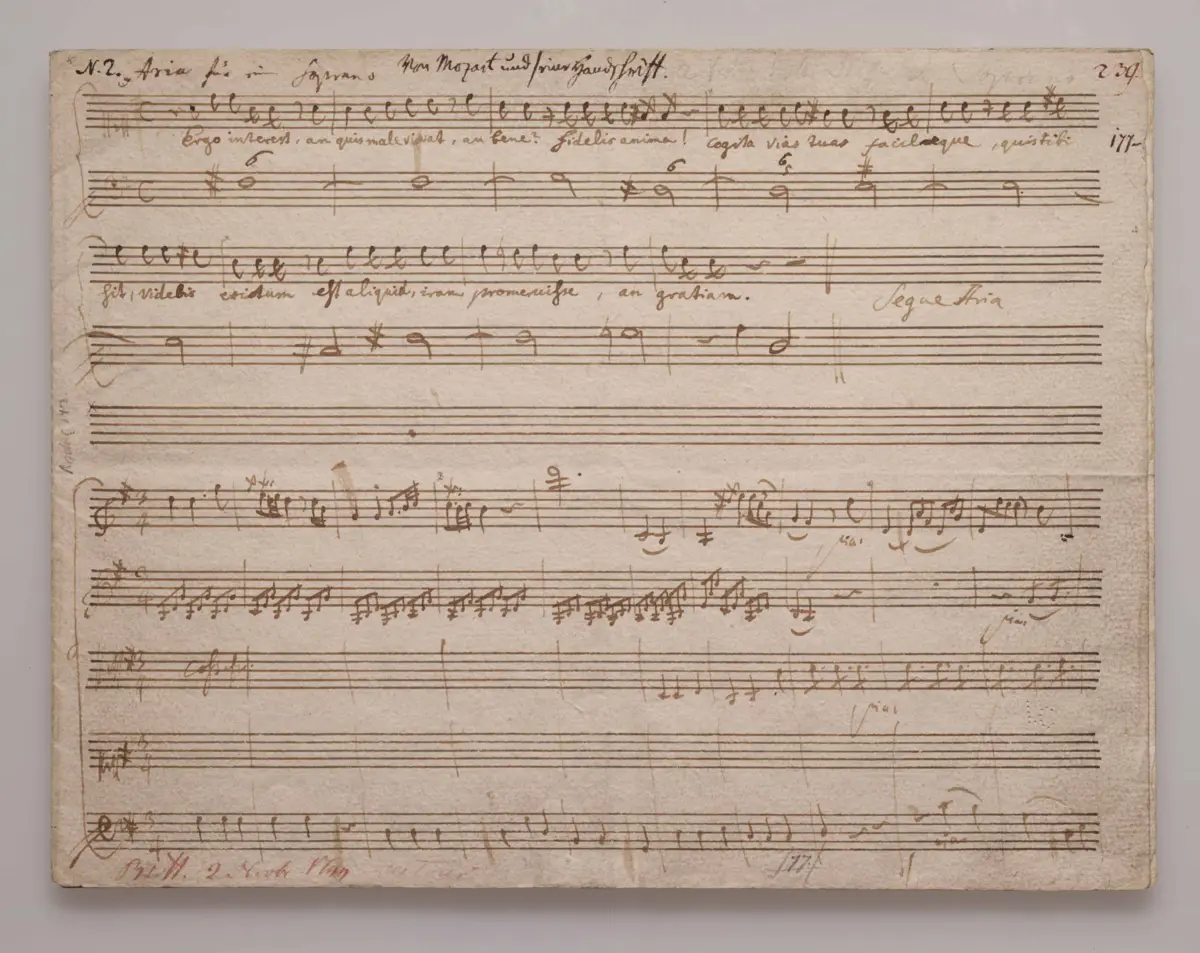 N. 2. Aria für ein Soprano Von Mozart und seiner Handschrift. 239.
Ergo interest, an quis male vivat, an bene? fidelis anima! cogita vias tuas facileque, quis tibi
177
6 6 6 5
sit, videbis exictum est aliquid, iram promeruisse, an gratiam.
Segue Aria
3 4
pia:
3 4
pia:
3 4
pia:
3 4
3 4
pia:
177